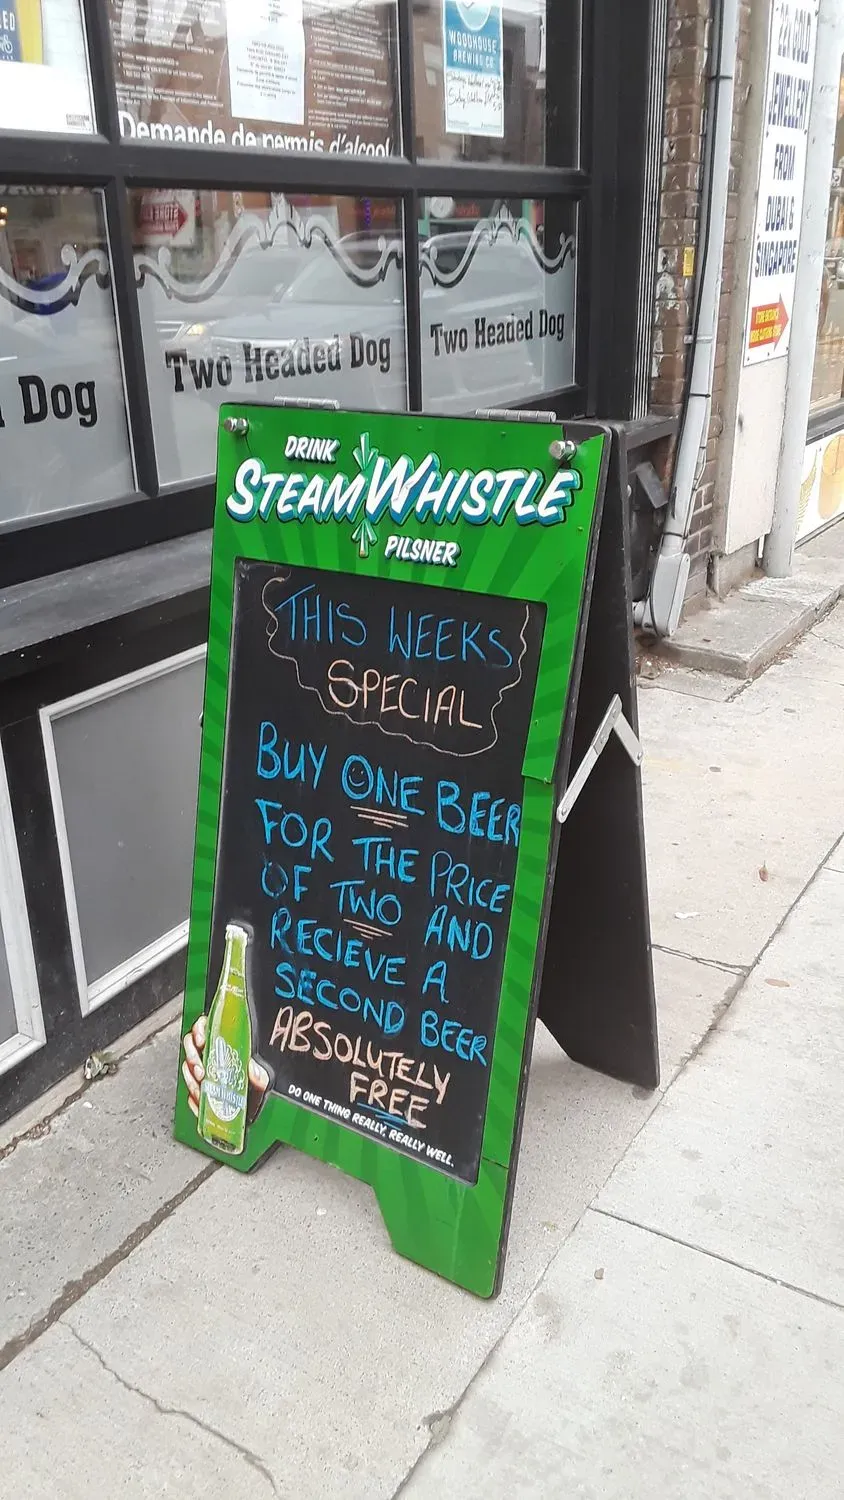 WOODHOUSE
BREWING CO
Demande de permis d'alcool
Dog
Two Headed Dog
Two Headed Dog
22k GOLD
JEWELLERY
FROM
DUBAI &
SINGAPORE
DRINK
STEAM WHISTLE
PILSNER
THIS WEEKS
SPECIAL
BUY ONE BEER
FOR THE PRICE
OF TWO AND
RECIEVE A
SECOND BEER
ABSOLUTELY
FREE
DO ONE THING REALLY, REALLY WELL.
STEAM WHISTLE